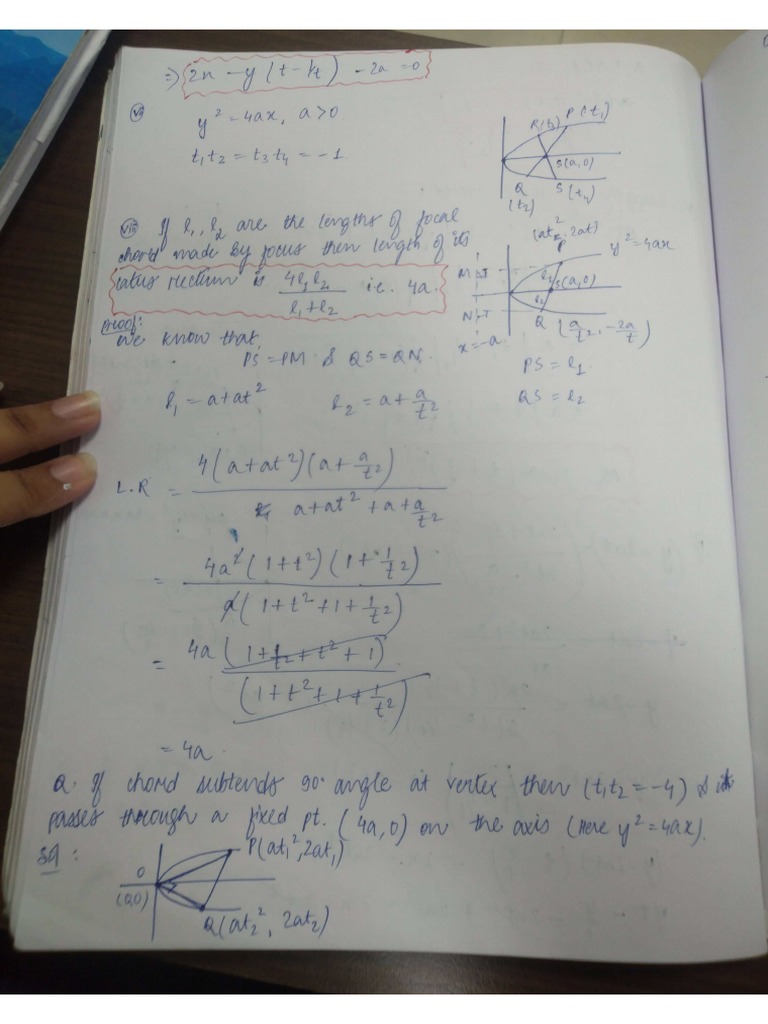 ⇒ 2x - y (t - 1/t) - 2a = 0
(vii) y² = 4ax, a > 0
t₁t₂ = t₃t₄ = -1
R(t₃) P(t₁)
S(a,0)
Q (t₂) S(t₄)
(viii) If l₁, l₂ are the lengths of focal
chord made by focus then length of its
latus rectum is 4l₁l₂ / (l₁+l₂) i.e. 4a.
(at², 2at)
P y² = 4ax
M l₁ S(a,0)
N l₂
Q (a/t², -2a/t)
x = -a
PS = l₁
QS = l₂
Proof:
We know that,
PS = PM & QS = QN.
l₁ = a + at² l₂ = a + a/t²
L.R = 4(a + at²)(a + a/t²) / a + at² + a + a/t²
= 4a²(1 + t²)(1 + 1/t²) / a(1 + t² + 1 + 1/t²)
= 4a (1 + 1/t² + t² + 1) / (1 + t² + 1 + 1/t²)
= 4a.
Q. If chord subtends 90° angle at vertex then (t₁t₂ = -4) & it
passes through a fixed pt. (4a, 0) on the axis (Here y² = 4ax).
Sol:
P(at₁², 2at₁)
O
(0,0)
Q(at₂², 2at₂)